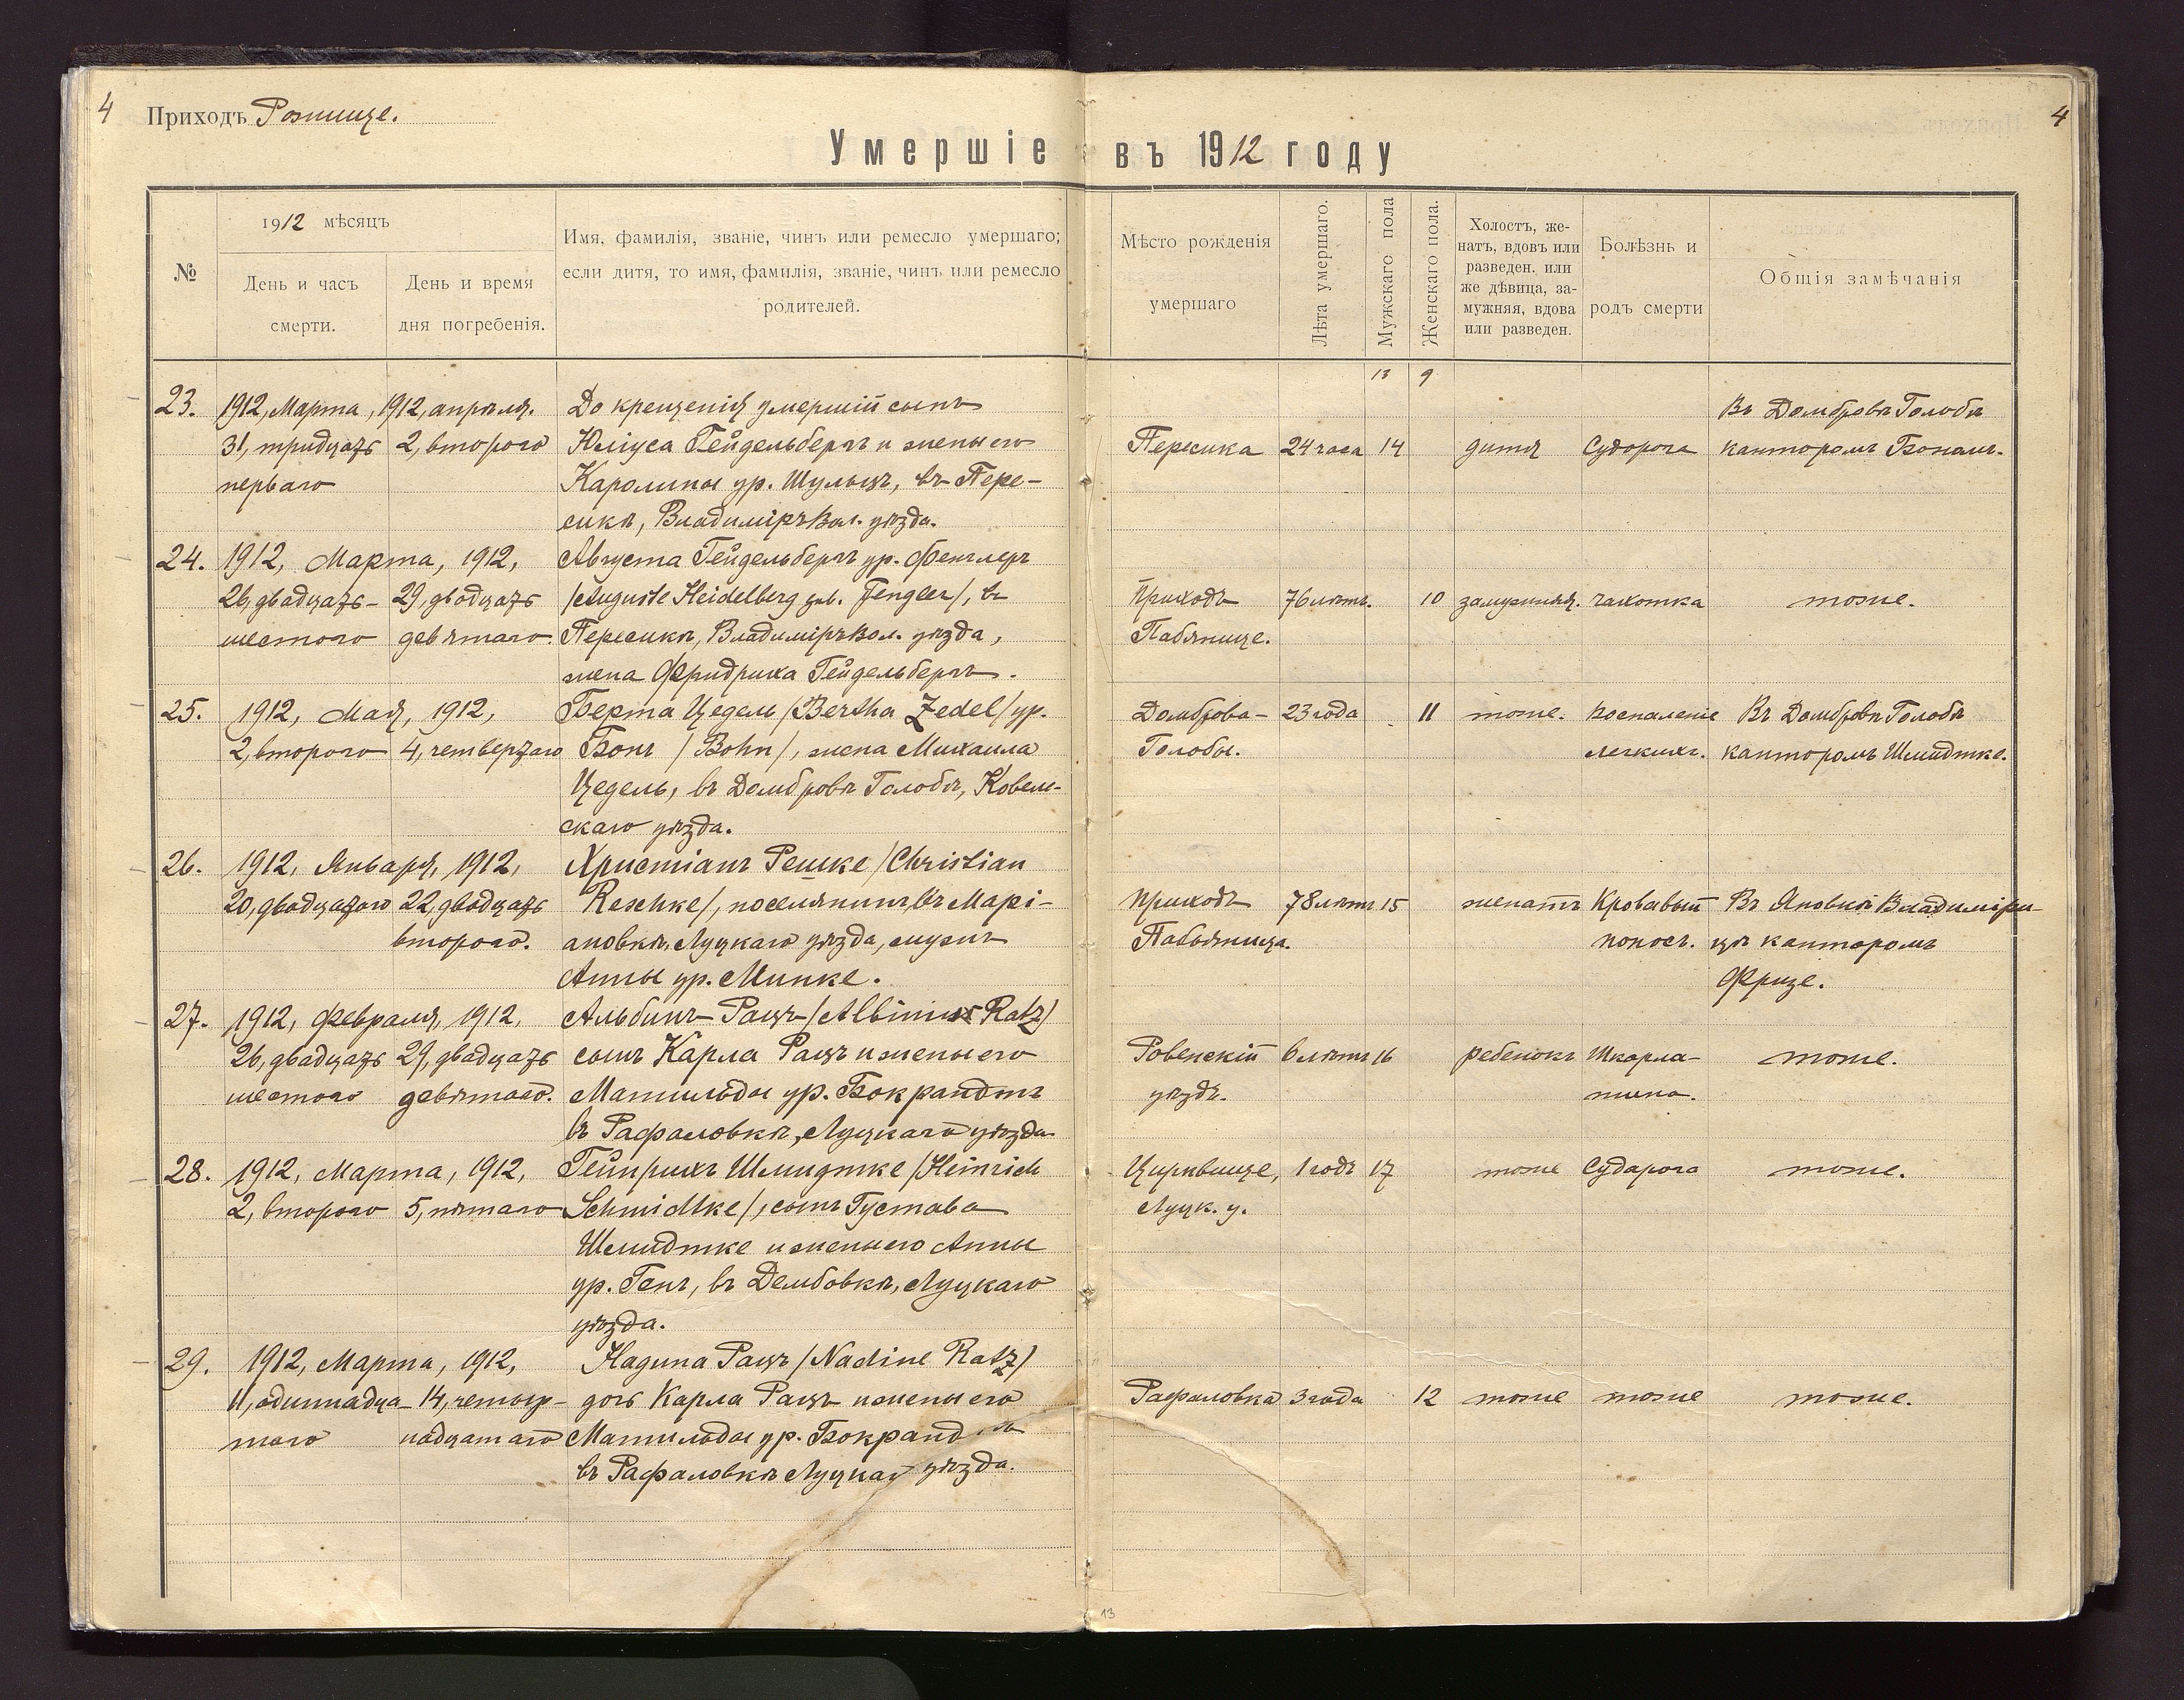 4 Приходъ Рожище. 4
Умершіе въ 1912 году
№
1912 мѣсяцъ
День и часъ смерти.
День и время дня погребенія.
Имя, фамилія, званіе, чинъ или ремесло умершаго;
если дитя, то имя, фамилія, званіе, чинъ или ремесло
родителей.
Мѣсто рожденія
умершаго
Лѣта умершаго.
Мужскаго пола
Женскаго пола.
Холостъ, же-
натъ, вдовъ или
разведен. или
же дѣвица, за-
мужняя, вдова
или разведен.
Болѣзнь и
родъ смерти
Общія замѣчанія
13 9
23. 1912, Марта, 1912, апрѣля. До крещенія умершій сынъ Въ Домбровѣ Голобѣ
31, тридцать 2, второго Юліуса Гейдельбергъ и жены его Пересика 24 часа 14 дитя Судорога канторомъ Бономъ.
перваго Каролины ур. Шульцъ, въ Пере-
сикѣ, ВладиміръВол. уѣзда.
24. 1912, Марта, 1912, Августа Гейдельбергъ ур. Фенглеръ
26, двадцать- 29, двадцать /Auguste Heidelberg geb. Fengler/, въ Приходъ 76 лѣтъ. 10 замужняя. чахотка тоже.
шестого девятаго. Пересикѣ, ВладиміръВол. уѣзда, Пабянице.
жена Фридриха Гейдельбергъ.
25. 1912, Мая, 1912, Берта Цедель /Bertha Zedel/ ур. Домброва- 23 года 11 тоже. Воспаленіе Въ Домбровѣ Голобѣ
2, второго 4, четвертаго Бонъ /Bohn/, жена Михаила Голобы. легкихъ. канторомъ Шмидтке.
Цедель, въ Домбровѣ Голобѣ, Ковель-
скаго уѣзда.
26. 1912, Января, 1912, Христіанъ Решке /Christian
20, двадцатаго 22, двадцать Reschke/, поселянинъ, въ Марі- Приходъ 78 лѣтъ 15 женатъ Кровавый Въ Яновкѣ Владиміри-
второго. ановкѣ, Луцкаго уѣзда, мужъ Пабьяница. поносъ. цѣ канторомъ
Анны ур. Минке. Фризе.
27. 1912, Февраля, 1912, Альбинъ Рацъ /Albinus Ratz/
26, двадцать 29, двадцать сынъ Карла Рацъ и жены его Ровенскій 6 лѣтъ 16 ребенокъ Шкарла- тоже.
шестого девятаго. Матильды ур. Бокрандтъ уѣздъ. тина.
въ Рафаловкѣ, Луцкаго уѣзда.
28. 1912, Марта, 1912, Гейнрихъ Шмидтке /Heinrich Цирквице, 1 годъ 17 тоже Сударога тоже.
2, второго 5, пятаго Schmidtke/, сынъ Густава Луцк. у.
Шмидтке и жены его Анны
ур. Генъ, въ Дембовкѣ, Луцкаго
уѣзда.
29. 1912, Марта, 1912, Надина Рацъ /Nadine Ratz/
11, одиннадца- 14, четыр- дочь Карла Рацъ и жены его Рафаловка 3 года 12 тоже тоже тоже.
таго надцатаго Матильды ур. Бокранд
въ Рафаловкѣ Луцкаго уѣзда.
13